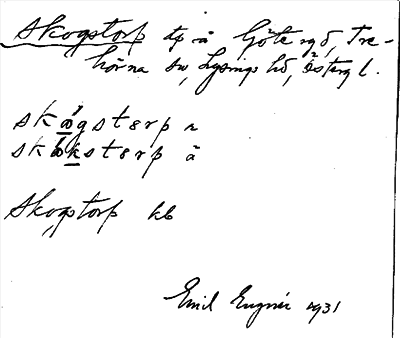 Skogstorp tp å Göteryd, Tre-
hörna sn, Lysings hd, Östergl.
skógstɛrp n
skòkstɛrp ä
Skogstorp kb
Emil Engnér 1931